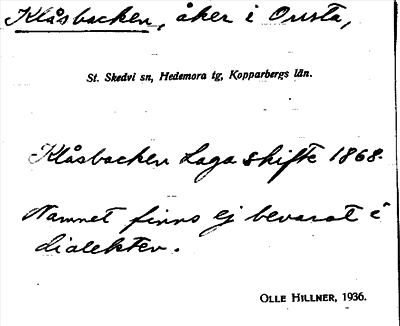 Klåsbacken, åker i Onsta,
St. Skedvi sn, Hedemora tg, Kopparbergs län.
Klåsbacken Laga skifte 1868.
Namnet finns ej bevarat i
dialekten.
OLLE HILLNER, 1936.